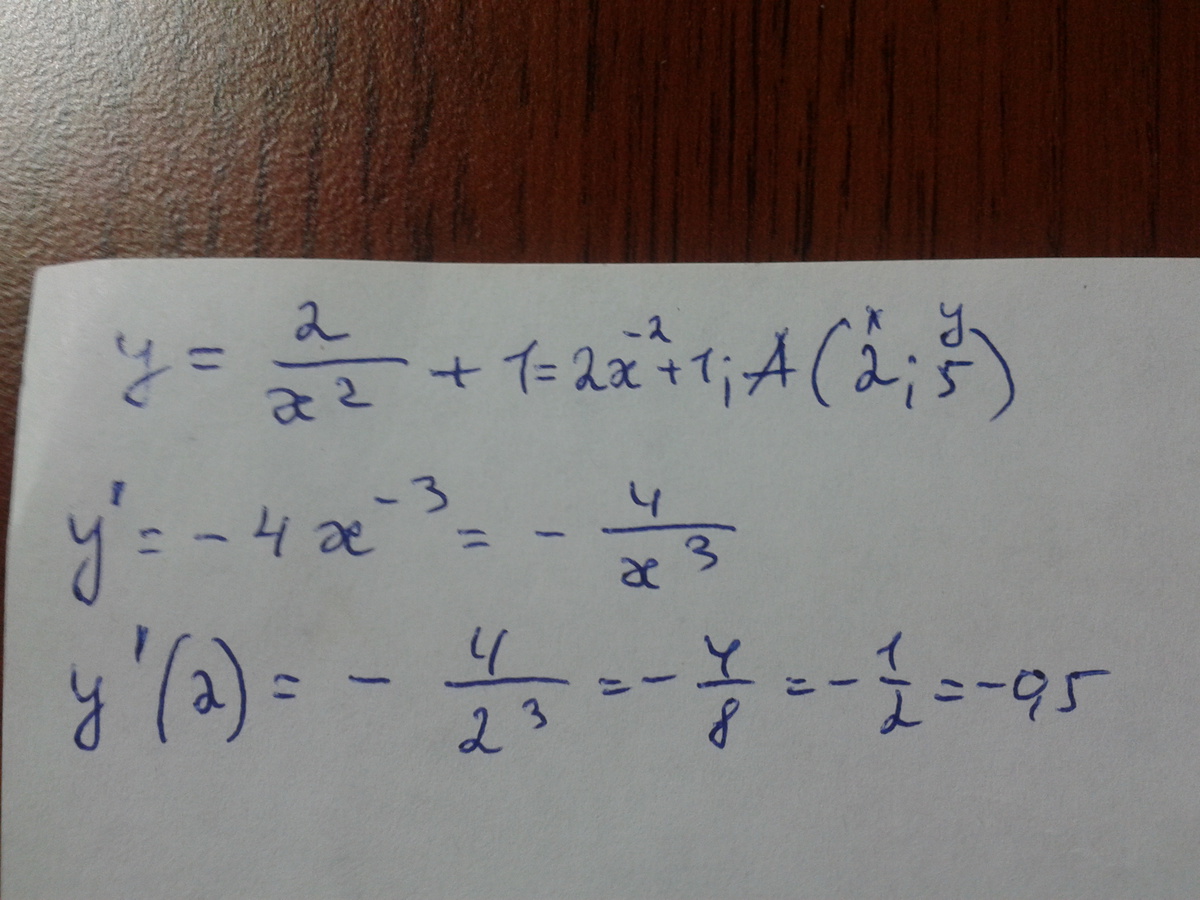 y = 2/x² + 1 = 2x⁻² + 1; A(2; 5)
x y
y' = - 4x⁻³ = - 4/x³
y'(2) = - 4/2³ = - 4/8 = - 1/2 = -0,5